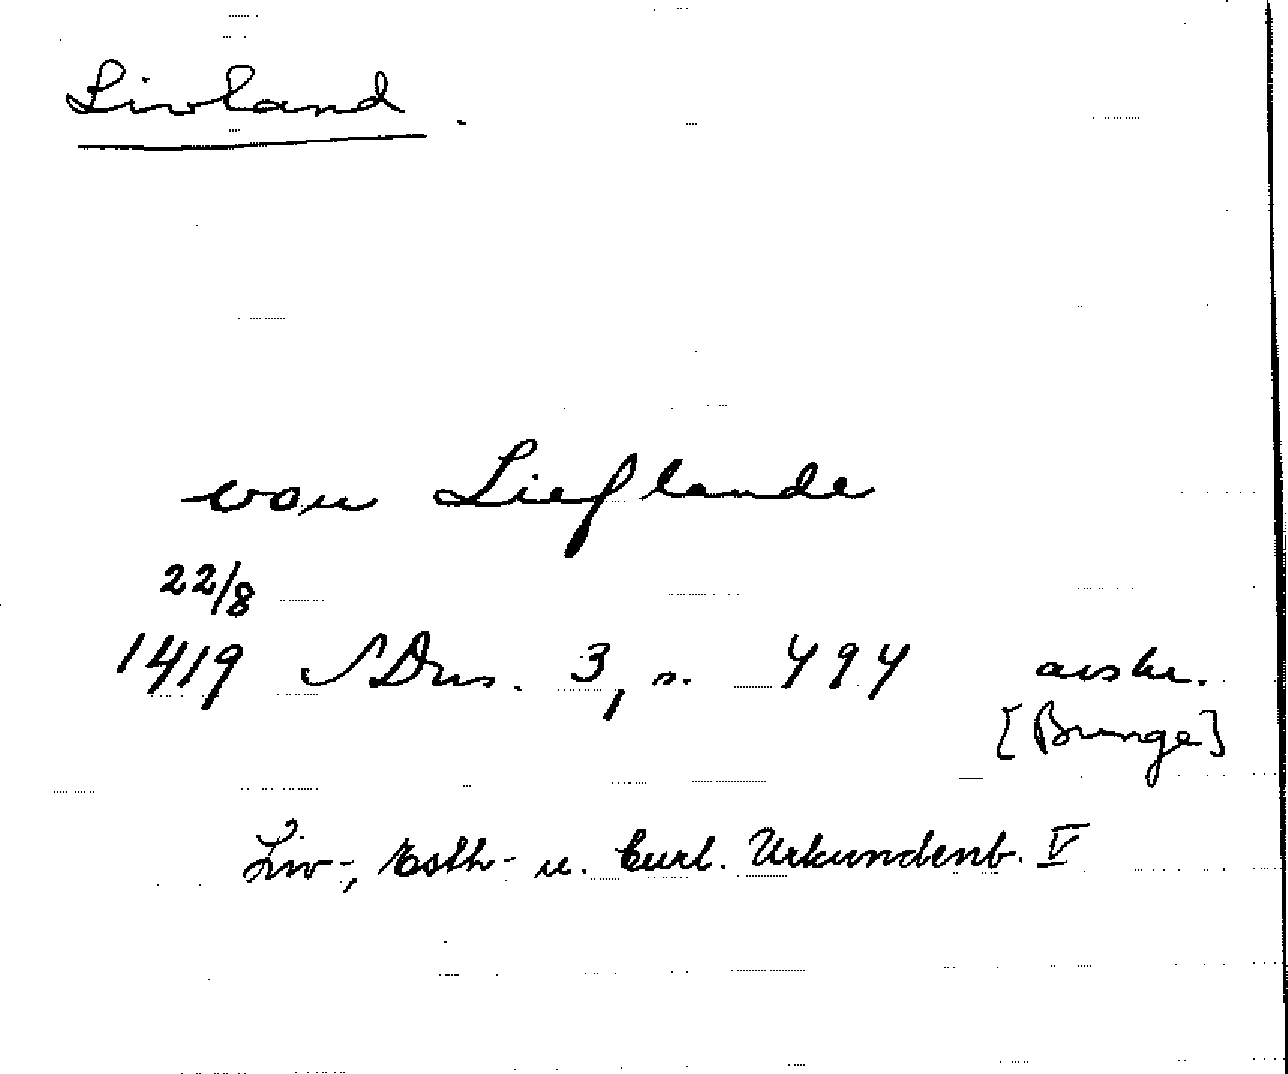 Livland.
van Lieflande
22/8
1419 SDns. 3, s. 494 avskr.
[Bunge]
Liv-, Esth- u. Curl. Urkundenb. V